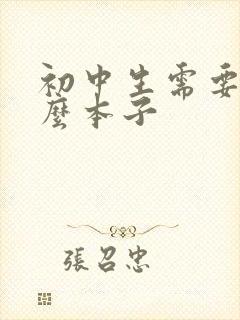 初中生需要
麼本子
張召忠